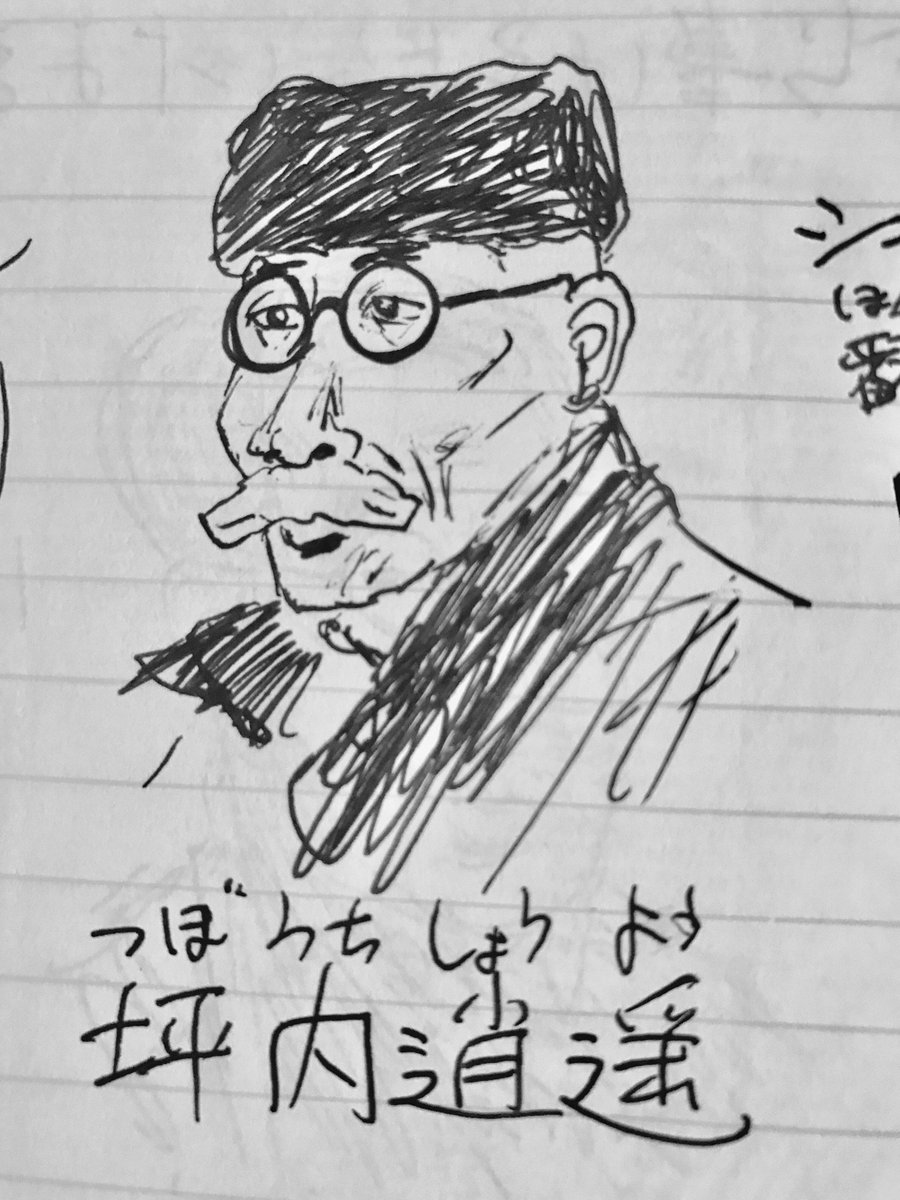 つぼ うち しょう よう
坪内逍遥
シ
ほ
番